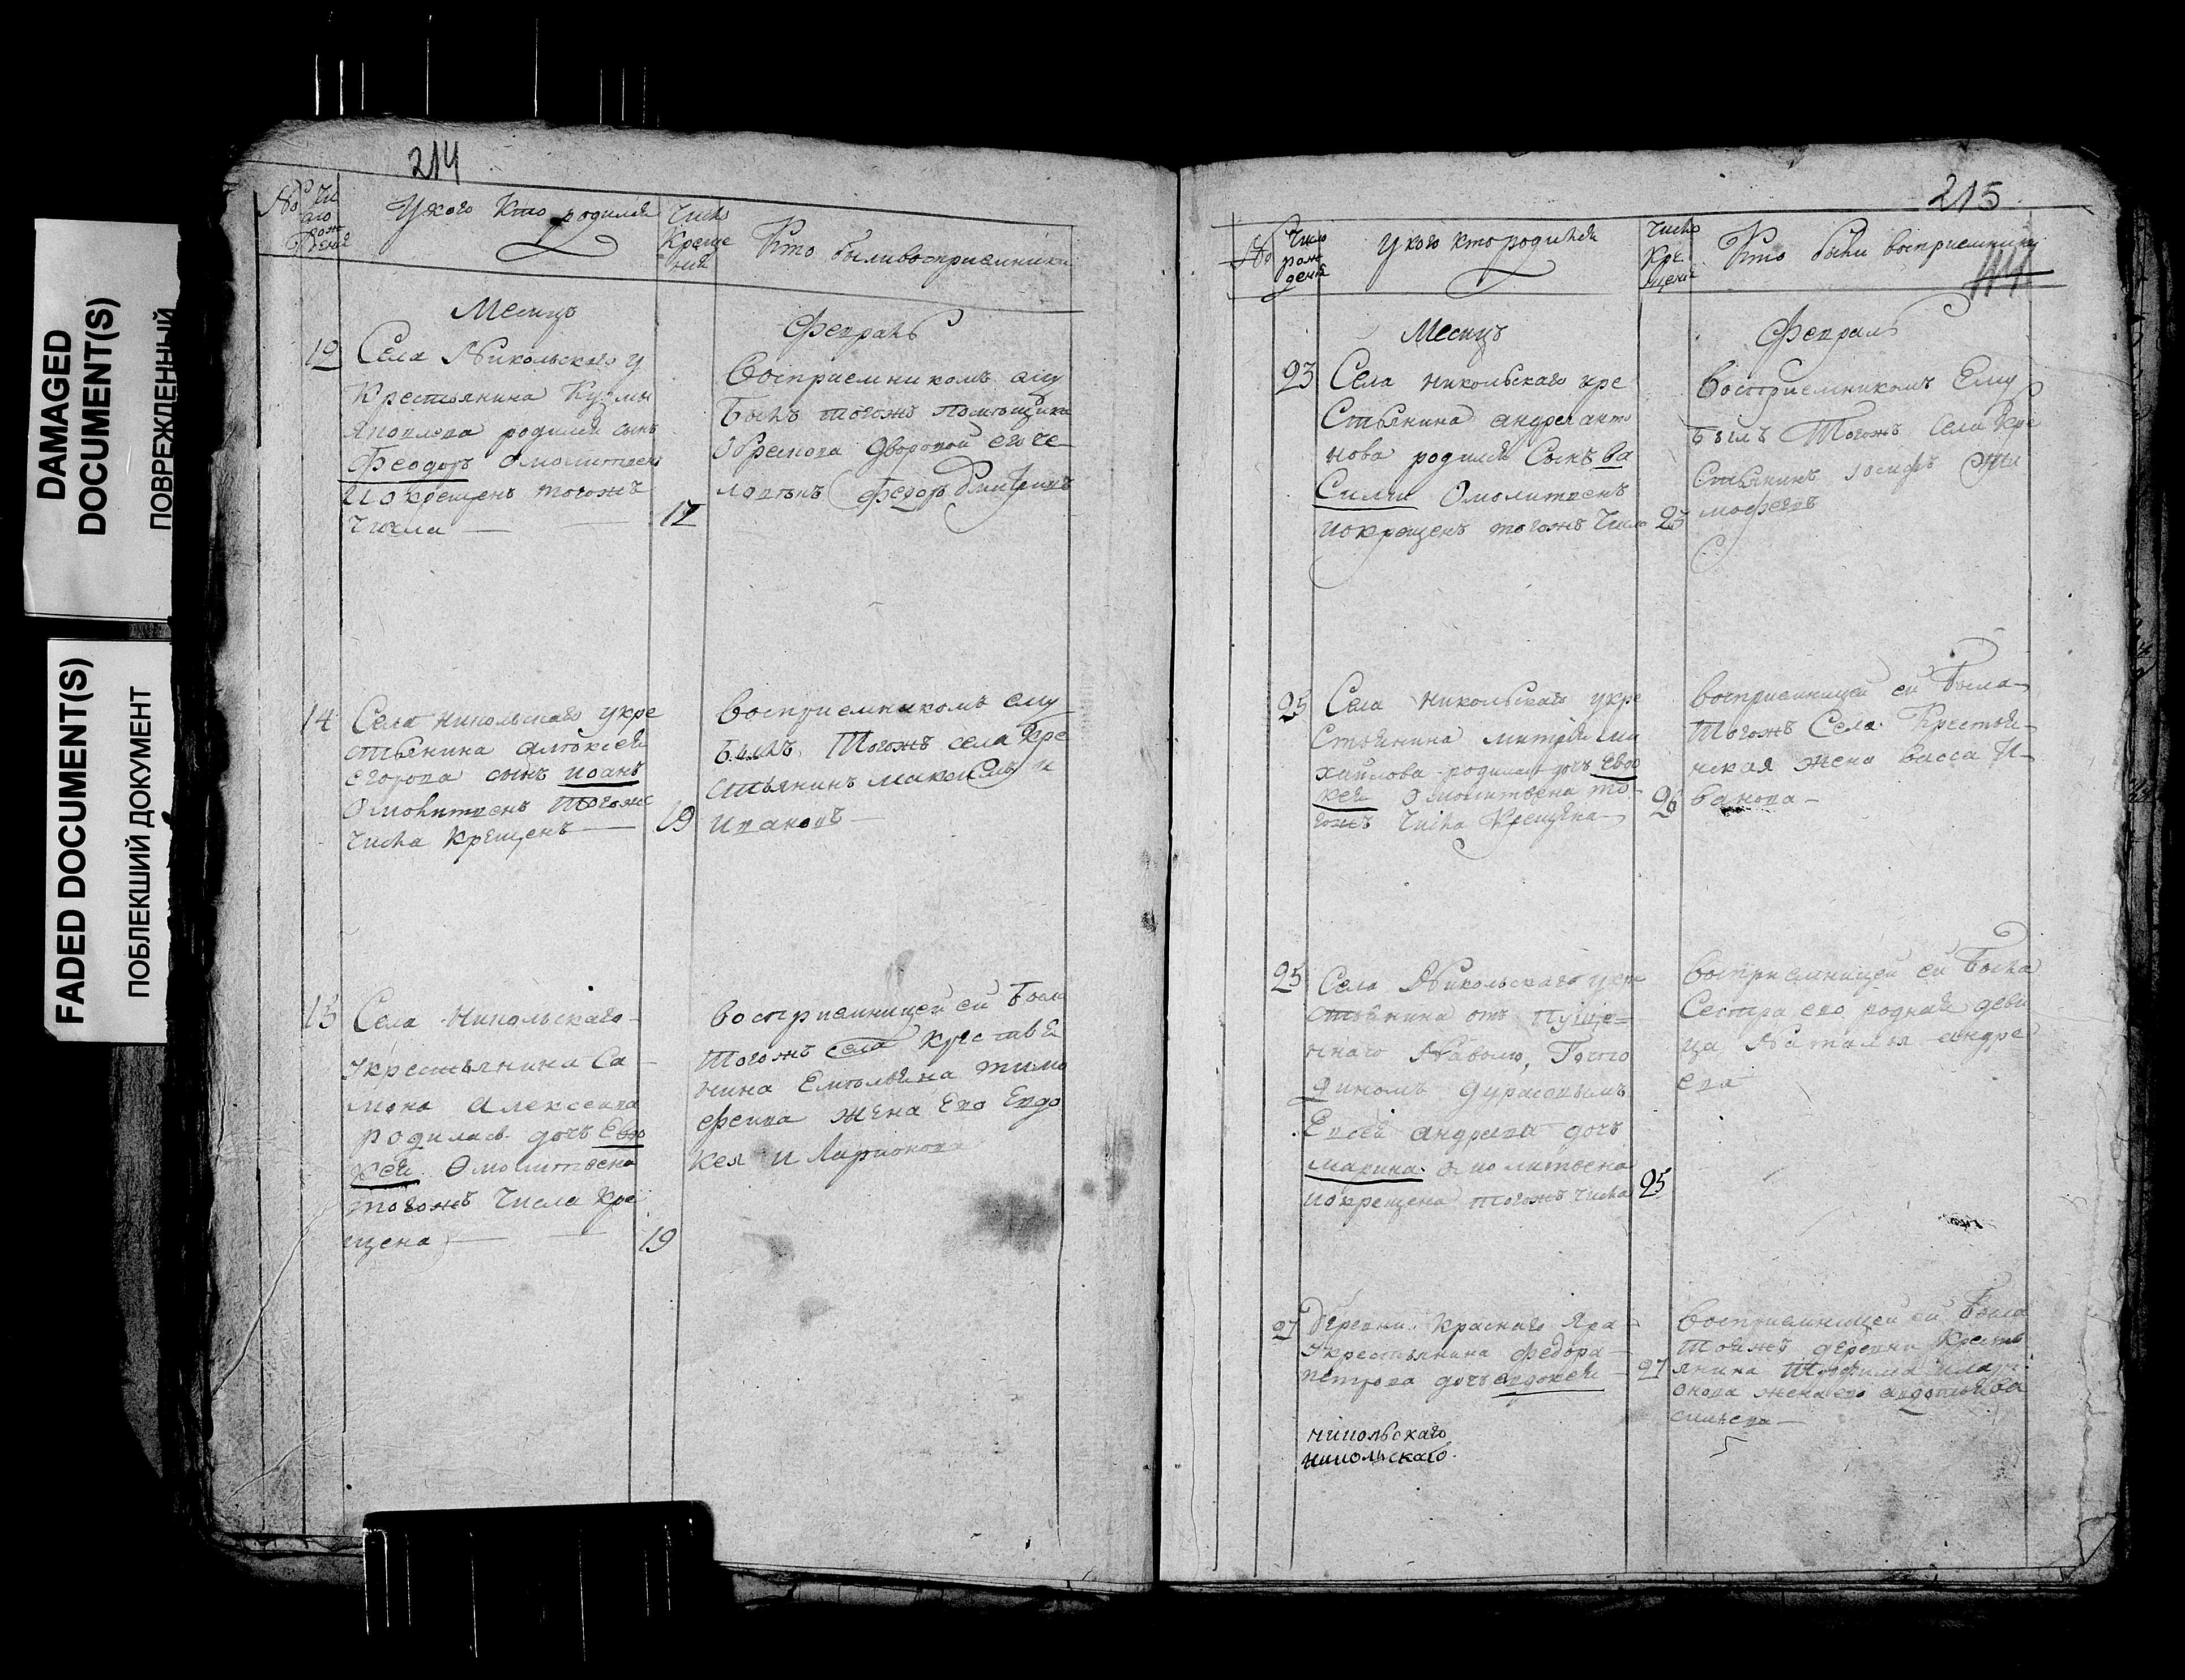 DAMAGED
DOCUMENT(S)
ПОВРЕЖДЕННЫЙ
FADED DOCUMENT(S)
ПОБЛЕКШИЙ ДОКУМЕНТ
214
№
Чи
сло
рож
дения
У кого кто родился
Число
Креще
ния
Кто были восприемники
Месяцъ
Февраль
12
Села Никольскаго у
Крестьянина Кузмы
Яковлева родился сынъ
Феодоръ Омолитвенъ
И окрещенъ тогожъ
Числа
12
Восприемникомъ ему
Былъ тогожъ помещика
дворовой его че
ловекъ Федоръ Дмитриевъ
14
Села Никольскаго у кре
стьянина Алексея
Егорова сынъ Иоанъ
Омолитвенъ Тогожъ
Числа Крещенъ
19
Восприемникомъ ему
Былъ Тогожъ села Кре
стьянинъ Максимъ
Ивановъ
15
Села Никольскаго
у крестьянина Са
мона Алексеева
родилась дочь Евдо
кея Омолитвена
тогожъ Числа Кре
щена
19
Восприемницей ей Была
Тогожъ села Крестья
нина Емельяна Тимо
феева жена Ево Евдо
кея Иларионова
215
№
Число
рож
дения
У кого кто родился
Число
Кре
щения
Кто были восприемники
Месяцъ
Февраль
23
Села Никольскаго у кре
Стьянина андрея анто
нова родился Сынъ Ва
Силий Омолитвенъ
и окрещенъ тогожъ Числа
23
Восприемникомъ Ему
былъ Тогожъ Села Кре
Стьянинъ Иосифъ Ти
мофеевъ
25
Села Никольскаго у кре
Стьянина митрия ми
хайлова родилась дочь Евдо
кея Омолитвена то
гожъ Числа Крещена
26
Восприемницей ей Была
Тогожъ Села Крестья
нская жена Васса И
ванова
25
Села Никольскаго у кре
стьянина отъ пуще
ннаго На волю Госпо
диномъ Дурасовымъ
Евсея андреева дочь
марина Омолитвена
и окрещена тогожъ числа
25
Восприемницей ей Была
Сестра его родная деви
ца Наталья андре
ева
27
Деревни Краснаго Яра
У крестьянина Федора
петрова дочь евдокея
27
Восприемницей ей Была
Тояжъ деревни Кресть
янина Трофима Илари
онова жена ево авдотья Ва
сильева
никольскаго
никольскаго